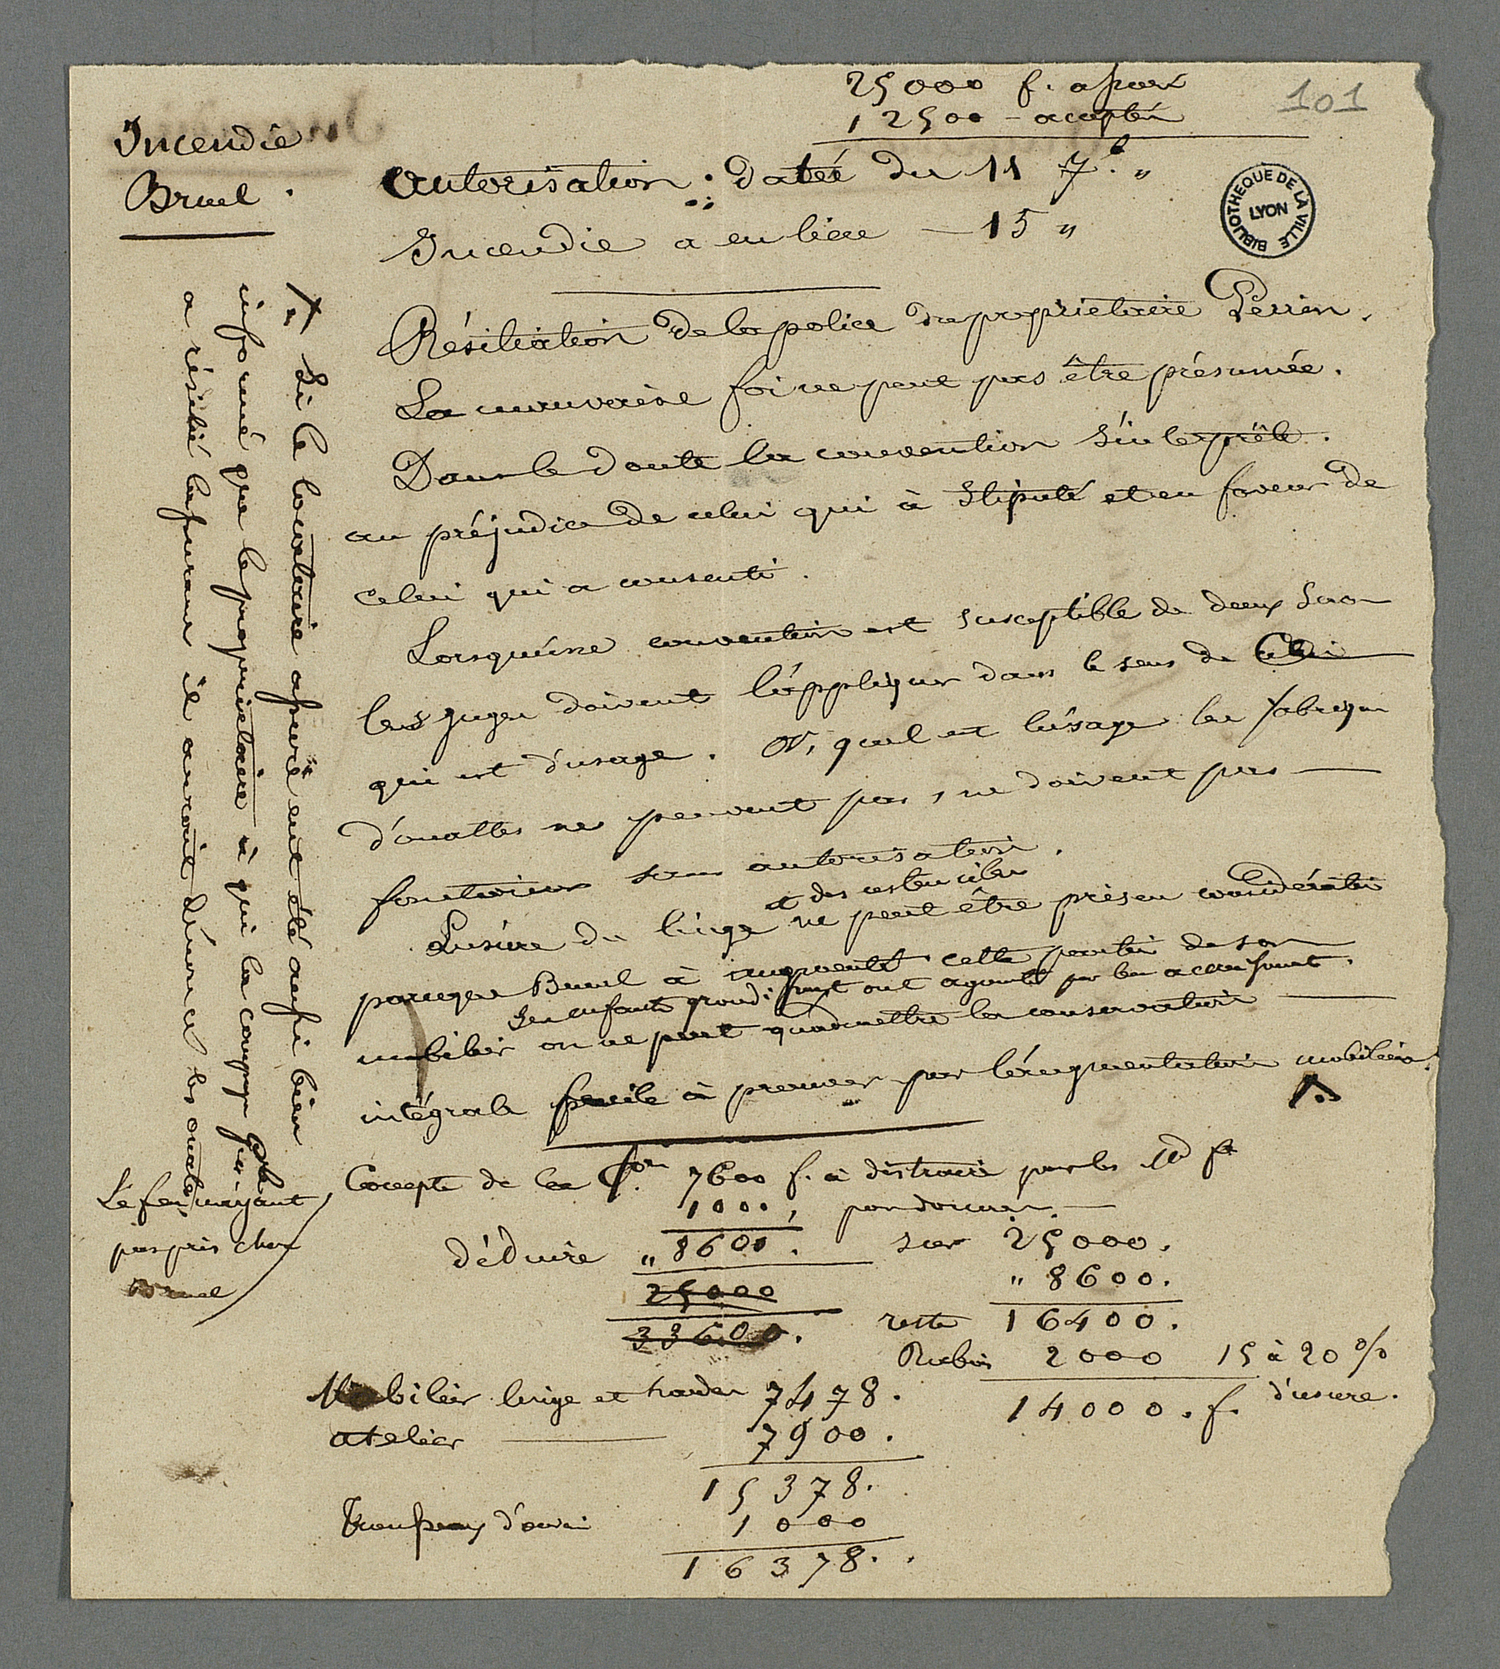 25000 f. assuré
12500 - accepté
101
Incendie
Bruel.
autorisation : datée du 11 7.b "
Incendie a eu liere — 15 "
BIBLIOTHEQUE DE LA VILLE
LYON
Résiliation de la police du proprietaire Perrin.
La mauvaise foi ne peut pas être présumée.
Dans le doute la convention s'interprête.
au préjudice de celui qui à stipulé et en faveur de
celui qui a consenti.
Lorsqu'une convention est susceptible de deux sens
les juges doivent l'appliquer dans le sens de celui
qui est d'usage. or, quel est l'usage les fabriques
d'ouattes ne peuvent pas, ne doivent pas
sans autorisation.
L'usure du linge et des ustenciles ne peut être pris en considération
parceque Bruel à augmenté cette partie de son
ses enfants grandissant ont ajouté par leu accroissant.
mobilier on ne peut qu'admettre la conservation
intégrale facile à prouver par l'augmentation mobiliere.
Si le locataire assuré eut été aussi bien
informé que le proprietaire à qui la compagnie
a résilié l'assurance il auroit dénoncé les ouattes
Le feu n'ayant
pas pris chez
Bruel
Compte de la Con 7600 f. à distraire par les
1000,
déduire " 8600. sur 25000.
25000 " 8600.
33600. reste 16400.
Rabais 2000 15 à 20 %
14000. f. d'usure.
Mobilier linge et hardes 7478.
atelier 7900.
15378.
Trousseaux d'
1000
16378.